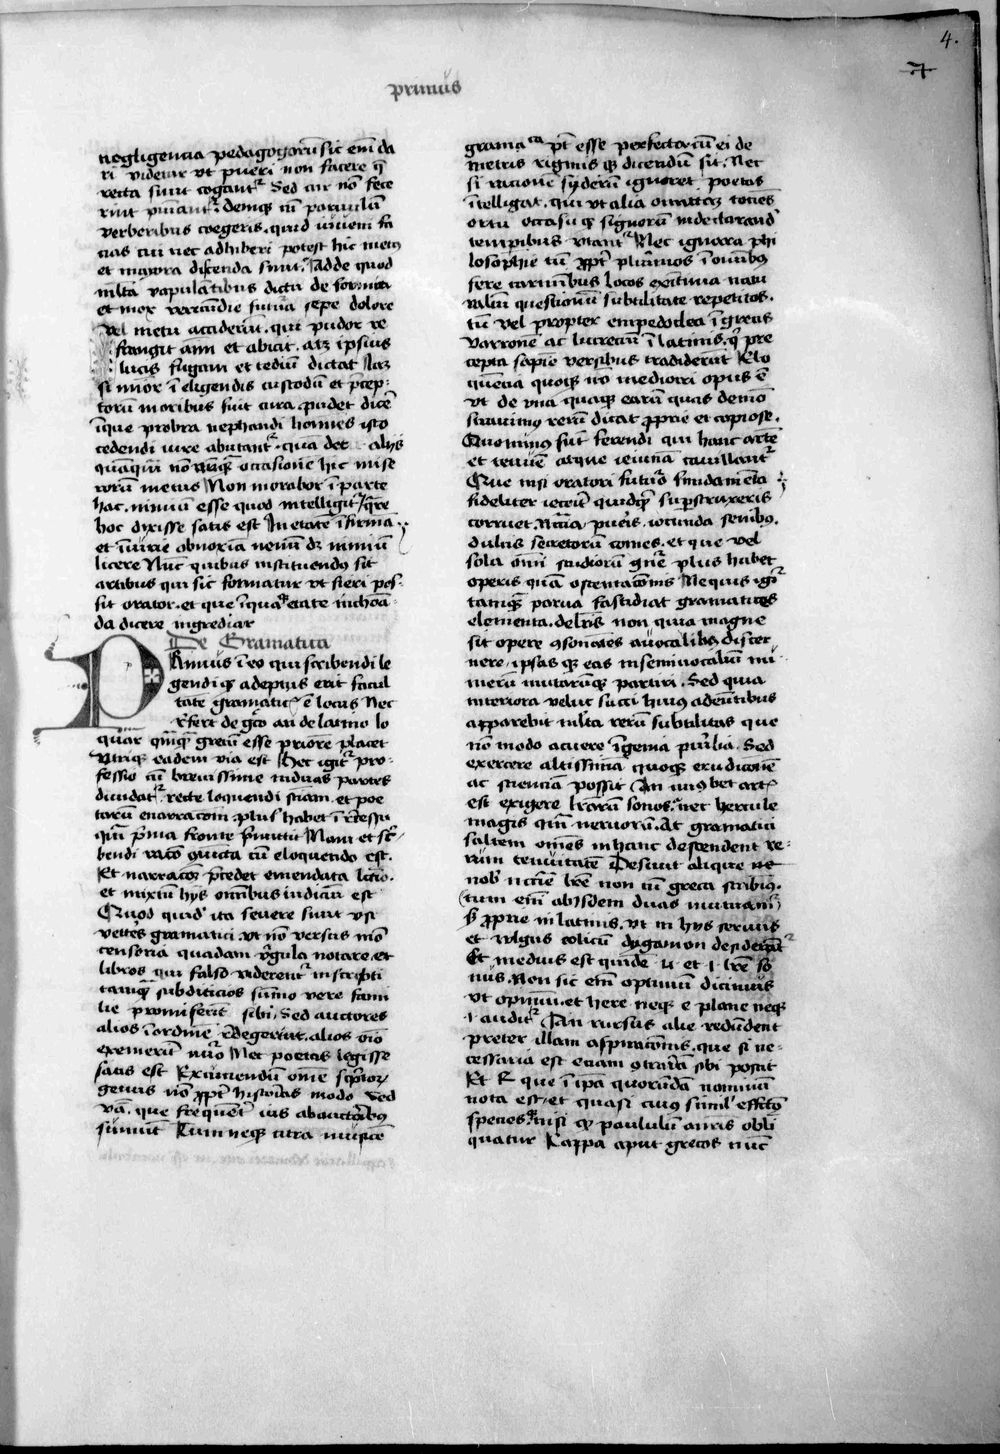 4.
7
primus
negligencia pedagogorū sic em̄ da
ri videtur vt pueri non facere q̄
recta sunt cogantᷣ Sed cur nō fece
rint puniantᷣ. Deniqꝫ cū paruulū
verberibus coegeris. quid iuueni fa
cias cui nec adhiberi potest hic metꝯ
et maiora discenda sunt. Adde quod
ml̄ta vapulātibus dictu deformia
et mox verecundie futura sepe dolore
vel metu acciderūt. qui pudor re
frangit aīm et abicit. atqꝫ ipsius
lucis fugam et tediū dictat Iaꝫ
si mīor ī eligendis custodū et p̄cep-
torū moribus fuit cura pudet dicē
īque probra nephandi homīes isto
cedendi iure abutantᷣ. quā det aliis
quāqm̄ nō nūqꝫ occasionē hic mise
rorū metus Non morabor ī parte
hac. nimiū esse quod intelligitᷣ. q̄re
hoc dixisse satis est In etatē īfirmā
et iniurie obnoxiā nemī dꝫ nimiū
licere Nūc quibus instituendus sit
artibus qui sic formatur vt fieri pos-
sit orator. et que īqua etate inchoā-
da dicere ingrediar
De Gramatica
PRimus ī eo qui scribendi le
gendiqꝫ adeptus erit facul
tatē gramaticis ē locus Nec
rēfert de gͣco an de latino lo
quar quāqꝫ grecū esse priorē placet
Utriqꝫ eadem via est Hec igitᷣ pro-
fessio cū breuissime in duas partes
diuidatᷣ. recte loquendi sciam. et poe
tarū enarracōm plus habet ī recessu
qm̄ p̄ma fronte p̄mittit Nam et scᷣ-
bendi raco ꝯiūcta cū eloquendo est.
Et narracōꝫ p̄cedet emendata lectio.
et mixtū hys omībus iudiciū est
Quod quid' ita seuere sunt vsi
veteꝫ gramatici. vt nō versus mō
censoria quadam virgula notare. et
libros qui falso viderentᷣ inscripti
tanqꝫ subditicios sūmo vere fami
lie promiserit sibi. Sed auctores
alios ī ordinē redegerint. alios oīo
exemerit nūo Nec poetas legisse
satis est Excuciendū omē scriptor
genus nō ꝓpt̄ historias modo sed
v̄ba. que frequēt̄ ius abauctoribꝯ
sumūt Tum neqꝫ citra musicē
grama ca pt̄ esse perfecta cū ei de
metris rigmisqꝫ dicendū sit. Nec
si racionē syderū ignoret poetas
ītelligat. qui vt alia omittaꝫ tociēs
ortu occasuqꝫ signorū in declarand'
temporibus vtantᷣ Nec ignara phi
losophie tū ꝓpt̄ plurimos ī omībꝯ
fere carmībus locos ex intima natu
ralium questionū subtilitate repetitos.
tū vel propter empedoclea ī grecis
varronē ac lucreciū ī latinis. qͥ pre
cepta sapīe versibus tradiderūt Elo
quēcia quoqꝫ nō mediocri opus ē
vt de vna quaqꝫ earū quas demō
strauimꝯ rerū dicat ꝓprie et copiose.
Quominꝯ sūt ferendi qui hanc artē
et tenuē atque ieiunā cauillantᷣ
Que nisi oratori futuro fundamēta
fideliter iecerit quidqꝫ superstruxeris
corruet. Nccāia pueris. iocunda senibꝯ.
dulcis secretorū comes. et que vel
sola omī studiorū gn̄e plus habet
operis quā ostentacōnis Ne quis igiᷣ
tanqꝫ parua fastidiat gramatices
elementa. debis non quia magne
sit opere ꝯsonātes auocalibꝯ discer
nere. ipsas qꝫ eas in semiuocaliū nu
merū mutarūqꝫ partiri. Sed quia
interiora velut sacri huiꝯ adeūtibus
apparebit ml̄ta rerū subtilitas que
nō modo acuere īgenia pur̄lia. Sed
exercere altissimā quoqꝫ erudicōnē
ac scienciā possit An cuiꝯbet auris
est exigere l̄rarū sonos. nec hercule
magis qm̄ neruorū. At gramatici
saltem omēs in hanc descendent re-
rum tenuitatē Desunt aliqne
nobꝭ n̄ccīe l̄re non cū greca scribimꝯ.
(tum em̄ abiisdem duas mutuamᷣ)
ß ꝓprie in latinis. vt in hys seruus
et vulgus eolicū dygamon desideratᷣ
Et medius est quidē u et i l̄re so
nus. Non sic em̄ optimū dicimus
vt opimū. et here neqꝫ e plane neqꝫ
i auditᷣ An rursus alie redūdent
preter illam aspiracōnis. que si ne-
cessaria est eciam ꝯtrariā sibi poscit
Et K que ī ipā quorundā nominū
nota est. et quasi cuiꝯ simil' effectꝯ
species. nisi qꝫ paululū auris obli
quatur Kappa aput grecos nūc